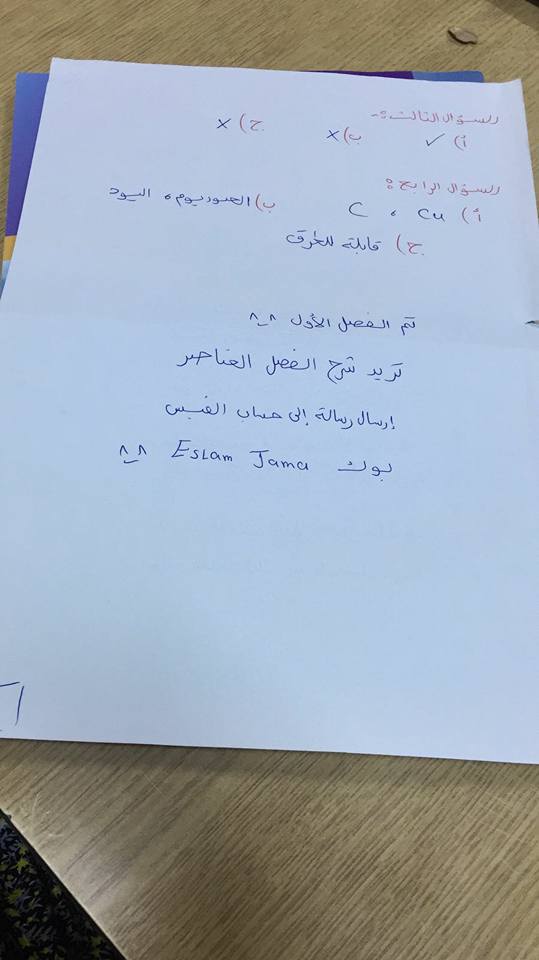 السؤال الثالث :-
أ) ✓ ب) × ج) ×
السؤال الرابع :
أ) Cu ، C ب) الصوديوم ، اليود
ج) قابلة للطرق
تم الفصل الأول ^_^
تريد شرح الفصل العناصر
إرسال رسالة إلى حساب الفيس
بوك Eslam Jama ^_^